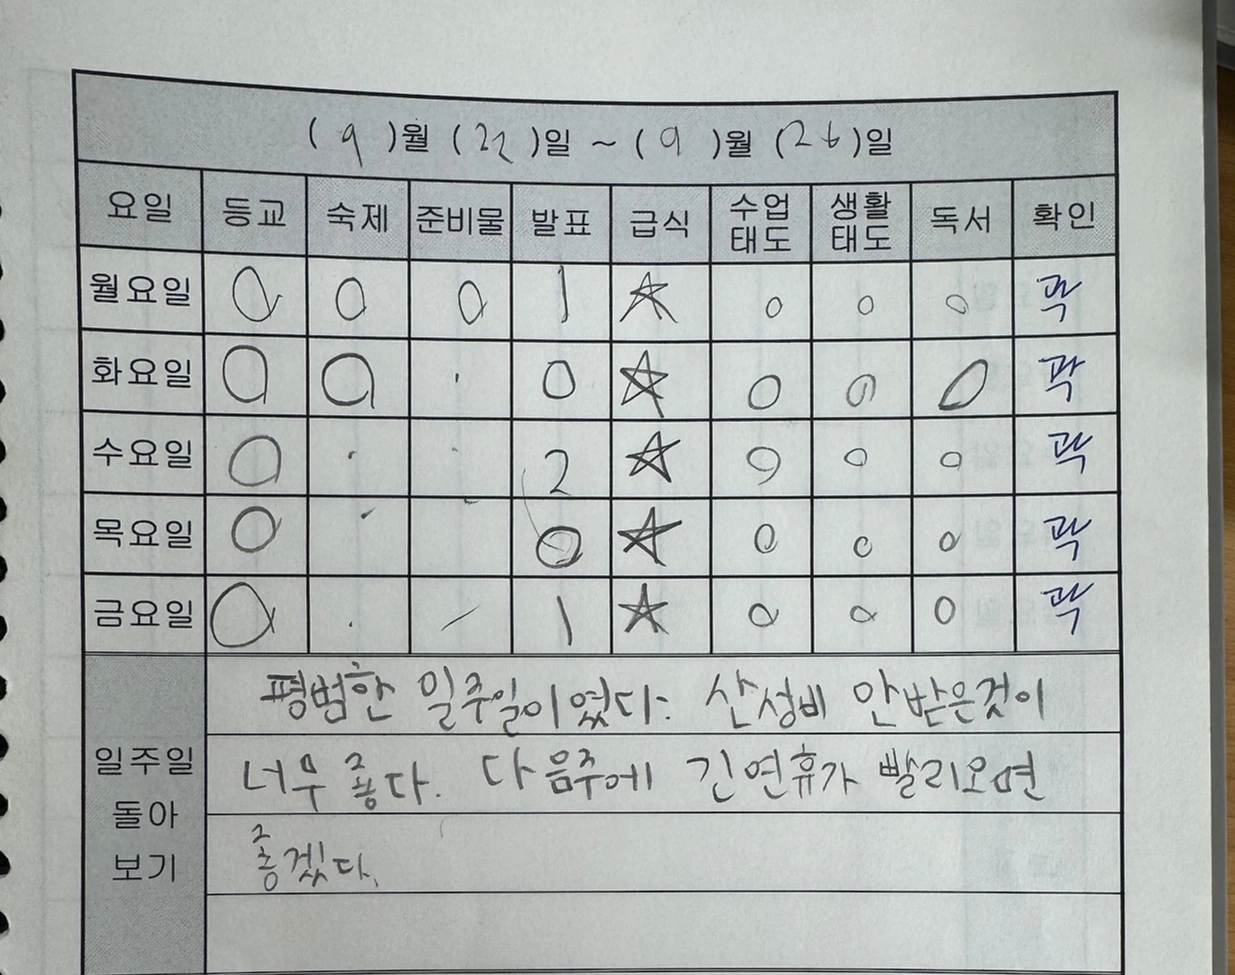 ( 9 )월 ( 22 )일 ~ ( 9 )월 ( 26 )일
요일 등교 숙제 준비물 발표 급식 수업 태도 생활 태도 독서 확인
월요일 O O O 1 ☆ O O O 곽
화요일 O O · O ☆ O O O 곽
수요일 O · · 2 ☆ O O O 곽
목요일 O O ☆ O O O 곽
금요일 O · / 1 ☆ O O O 곽
일주일
돌아
보기
평범한 일주일이였다. 산성비 안받은것이
너무 좋다. 다음주에 긴연휴가 빨리오면
좋겠다.